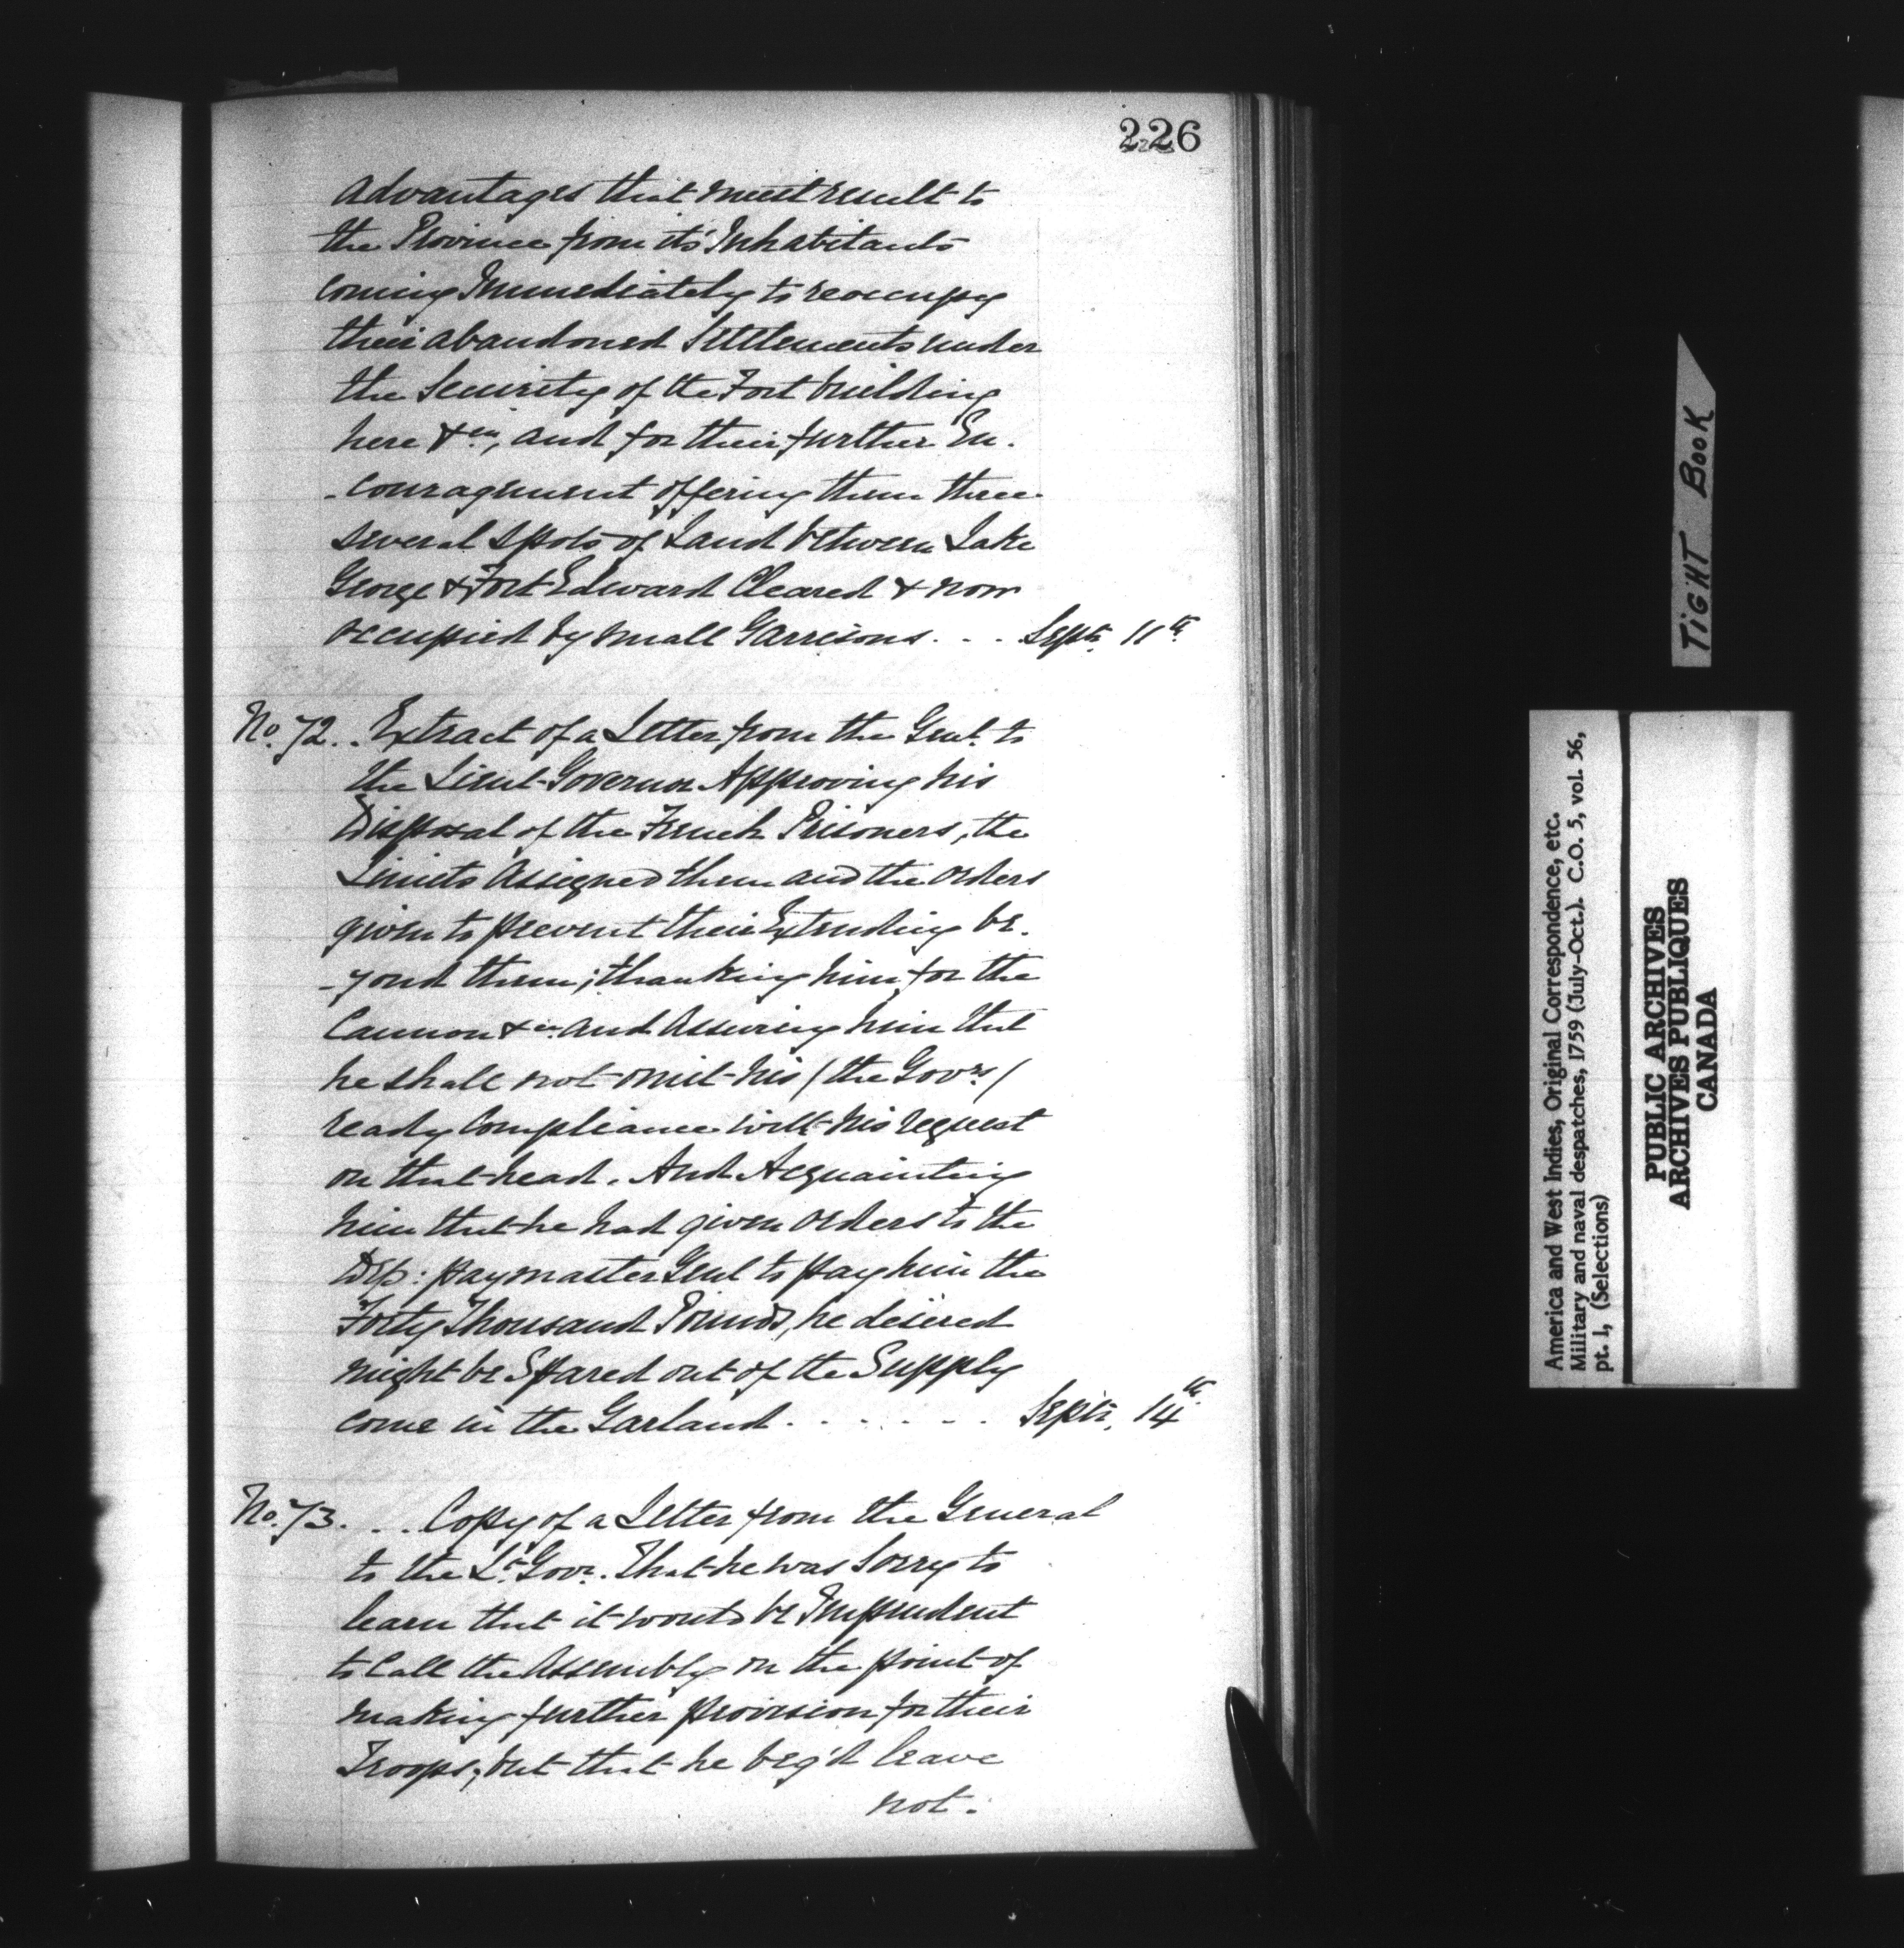 226
Advantages that must result to
the Province from its' Inhabitants
coming Immediately to reoccupy
their abandoned Settlements under
the Security of the Fort building
here &ca, and for their further En-
-couragement offering them three
several spots of Land between Lake
George & Fort Edward Cleared & now
occupied by small Garrisons. . . . Septr. 11th
No. 72. . Extract of a Letter from the Genl. to
the Lieut-Governor Approving his
Disposal of the French Prisoners, the
Limits Assigned them and the Orders
given to prevent their Extending be-
-yond them; thanking him for the
Cannon &ca. and Assuring him that
he shall not omit his / the Govrs. /
ready Compliance with his request
on that head. And Acquainting
him that he had given Orders to the
Dep: paymaster Genl to pay him the
Forty Thousand Pounds, he desired
might be Spared out of the Supply
come in the Garland . . . . . . . Septr. 14th
No. 73. . . . Copy of a Letter from the General
to the Lt. Govr. That he was Sorry to
learn that it would be Imprudent
to Call the Assembly on the point of
making further provision for their
Troops; but that he beg'd leave
not.
TIGHT BOOK
America and West Indies, Original Correspondence, etc.
Military and naval despatches, 1759 (July-Oct.). C.O. 5, vol. 56,
pt. 1, (Selections)
PUBLIC ARCHIVES
ARCHIVES PUBLIQUES
CANADA